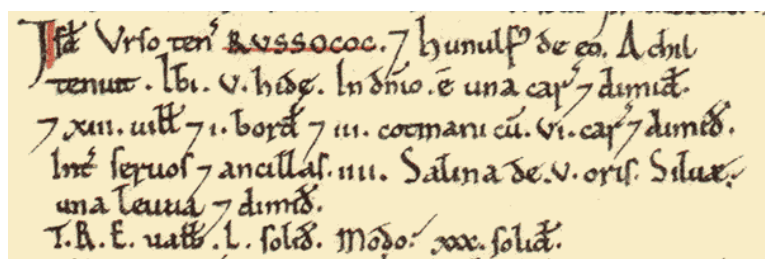 Isđ Vrso ten' RVSSOCOC. ⁊ hunulf' de eo. Achil
tenuit. Ibi. v. hidę. In dn̄io. ē una car' ⁊ dimiđ.
⁊ xiii. uiłł ⁊ i. borđ ⁊ iii. cotmani cū. vi. car' ⁊ dimiđ.
Int' seruos ⁊ ancillas. iiii. Salina de. v. oris. Siluæ.
una leuua ⁊ dimiđ.
T.R.E. ualb̄. L. soliđ. Modo. xxx. soliđ.